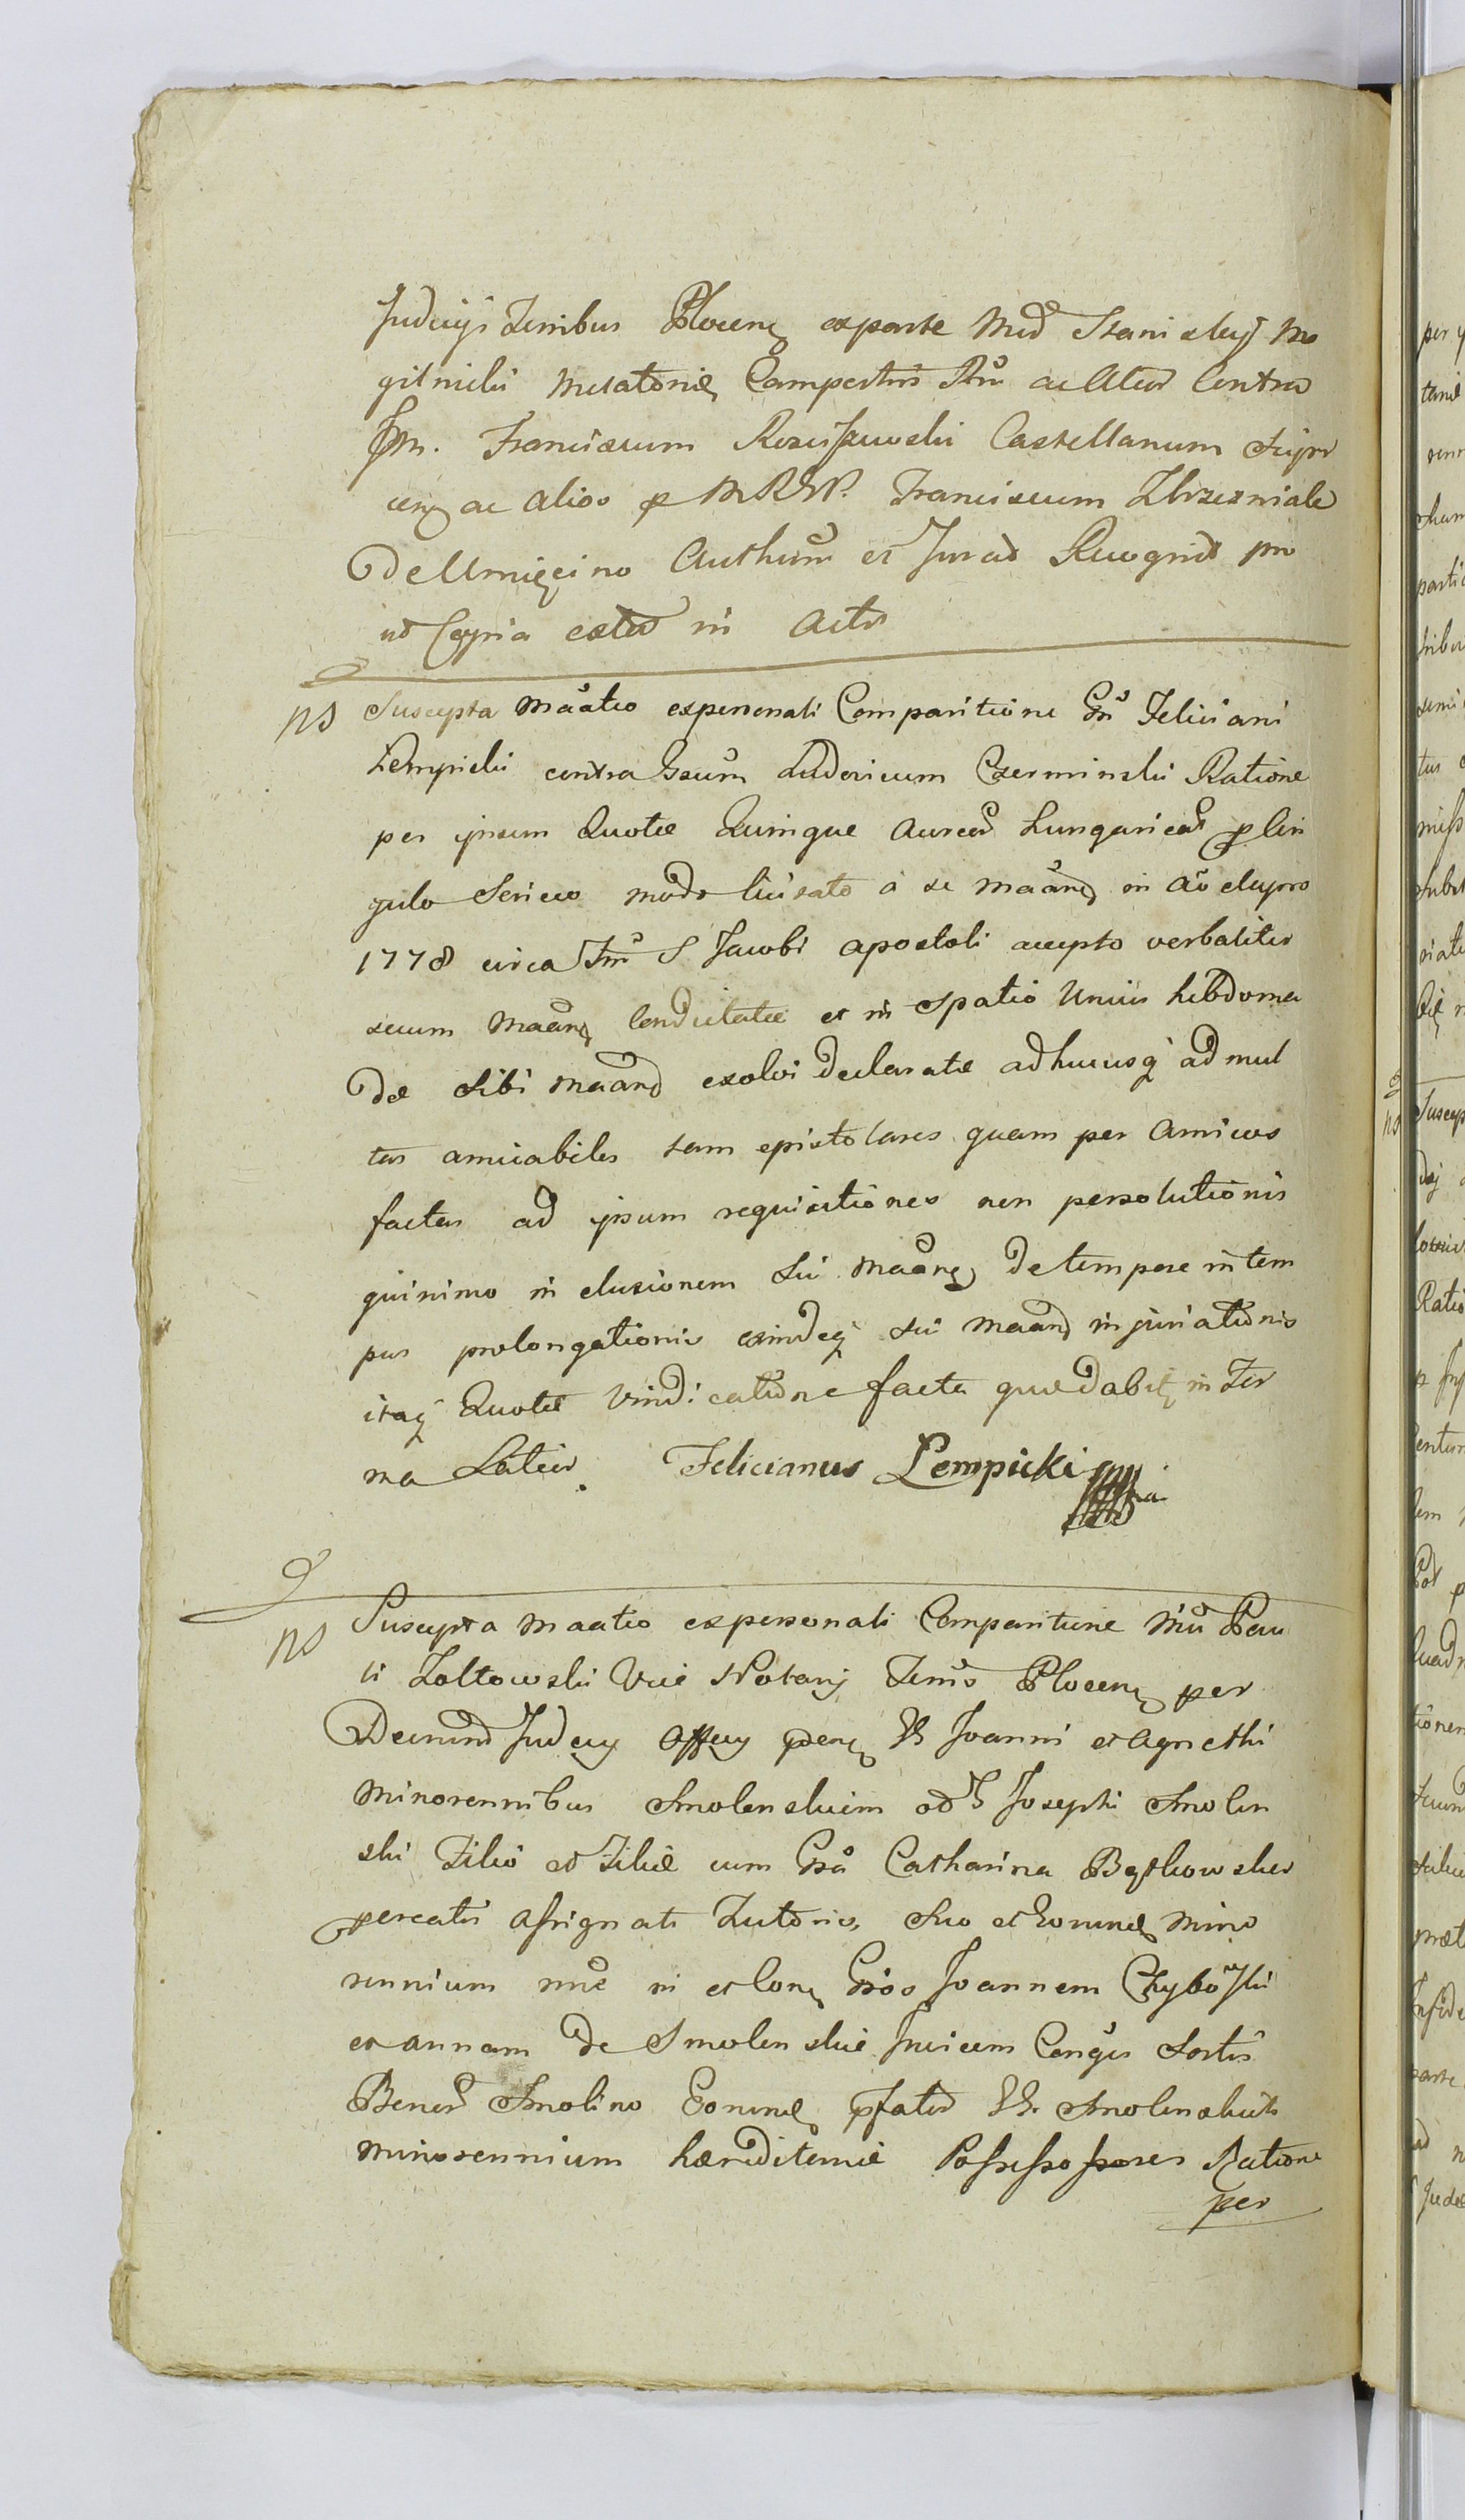 Judicijs Terribus Plocens exparte Mid Stanislaij Mo
gilnicki Metatoris Campestris Rni ac Ateur Contra
Jllm. Franciscum Rosciszewski Castellanum Sierp
cens ac alios p MRWP. Franciscum Zbrzezniak
de Umięcino Authum et Jurat Recognit pro
ut Copia extat in Actis
ns Suscepta maãtio expersonali Comparitione Gri Feliciani
Lempicki contra Gsum Ludovicum Czerminski Ratione
per ipsum Quotae Quinque Aureor Hungarical p Cin
gulo Sericeo modo licitato a se maãne in Aõ elapso
1778 circa ffm S Jacobi apostoli accepto verbaliter
secum maãne Condictatae et in Spatio Unius hebdoma
dae Sibi maand exolvi declaratae adhucusq ad mul
tas amicabiles tam epistolares quam per Amicos
factas ad ipsum requisitiones non persolutionis
quinimo in elusionem Sui maãne de tempore in tem
pus prolongationis exindeq Sui maand injuriationis
itaq Quotae Vindicatione facta quae dabit in Ter
mo Latior. Felicianus Lempicki mpa
ns Suscepta maatio expersonali Comparitione Mii Pau
li Zoltowski Vice Notarij Terris Plocens per
Decretum Judicij Officij praens G Joanni et Agnethi
minorennibus Smolenskiem od G Josephi Smolen
ski Filio et Filiae cum Gsa Catharina Bętkowska
percatis assignati Tutoris, Suo et Eorund mino
rennium nõe in et Cons Gsos Joannem Chyboski
et annam de Smolenskie Invicem Conges Sortis
Bonor Smolino Eorund pfator GG. Smolenskich
minorennium haereditariae Possessores Ratione
per